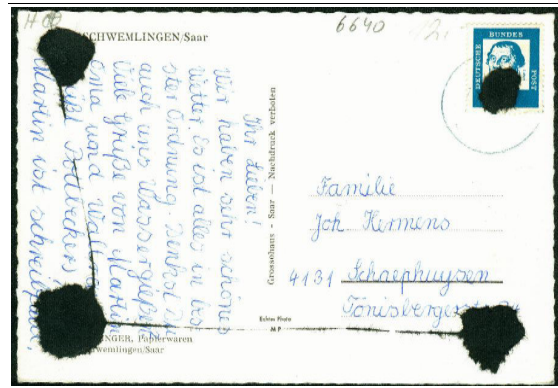 6640
SCHWEMLINGEN/Saar
DEUTSCHE
BUNDES
POST
Ihr Lieben!
Wir haben sehr schönes
Wetter. Es ist alles in be-
ster Ordnung. Denkst Du
auch ans Wassergießen
Viele Grüße von Martin
Oma und
Martin ist schreibfaul.
Grossohaus - Saar — Nachdruck verboten
Familie
Joh. Hermens
4131 Schaephuysen
Tönisberger
Echtes Photo
M P
INGER, Papierwaren
Schwemlingen/Saar